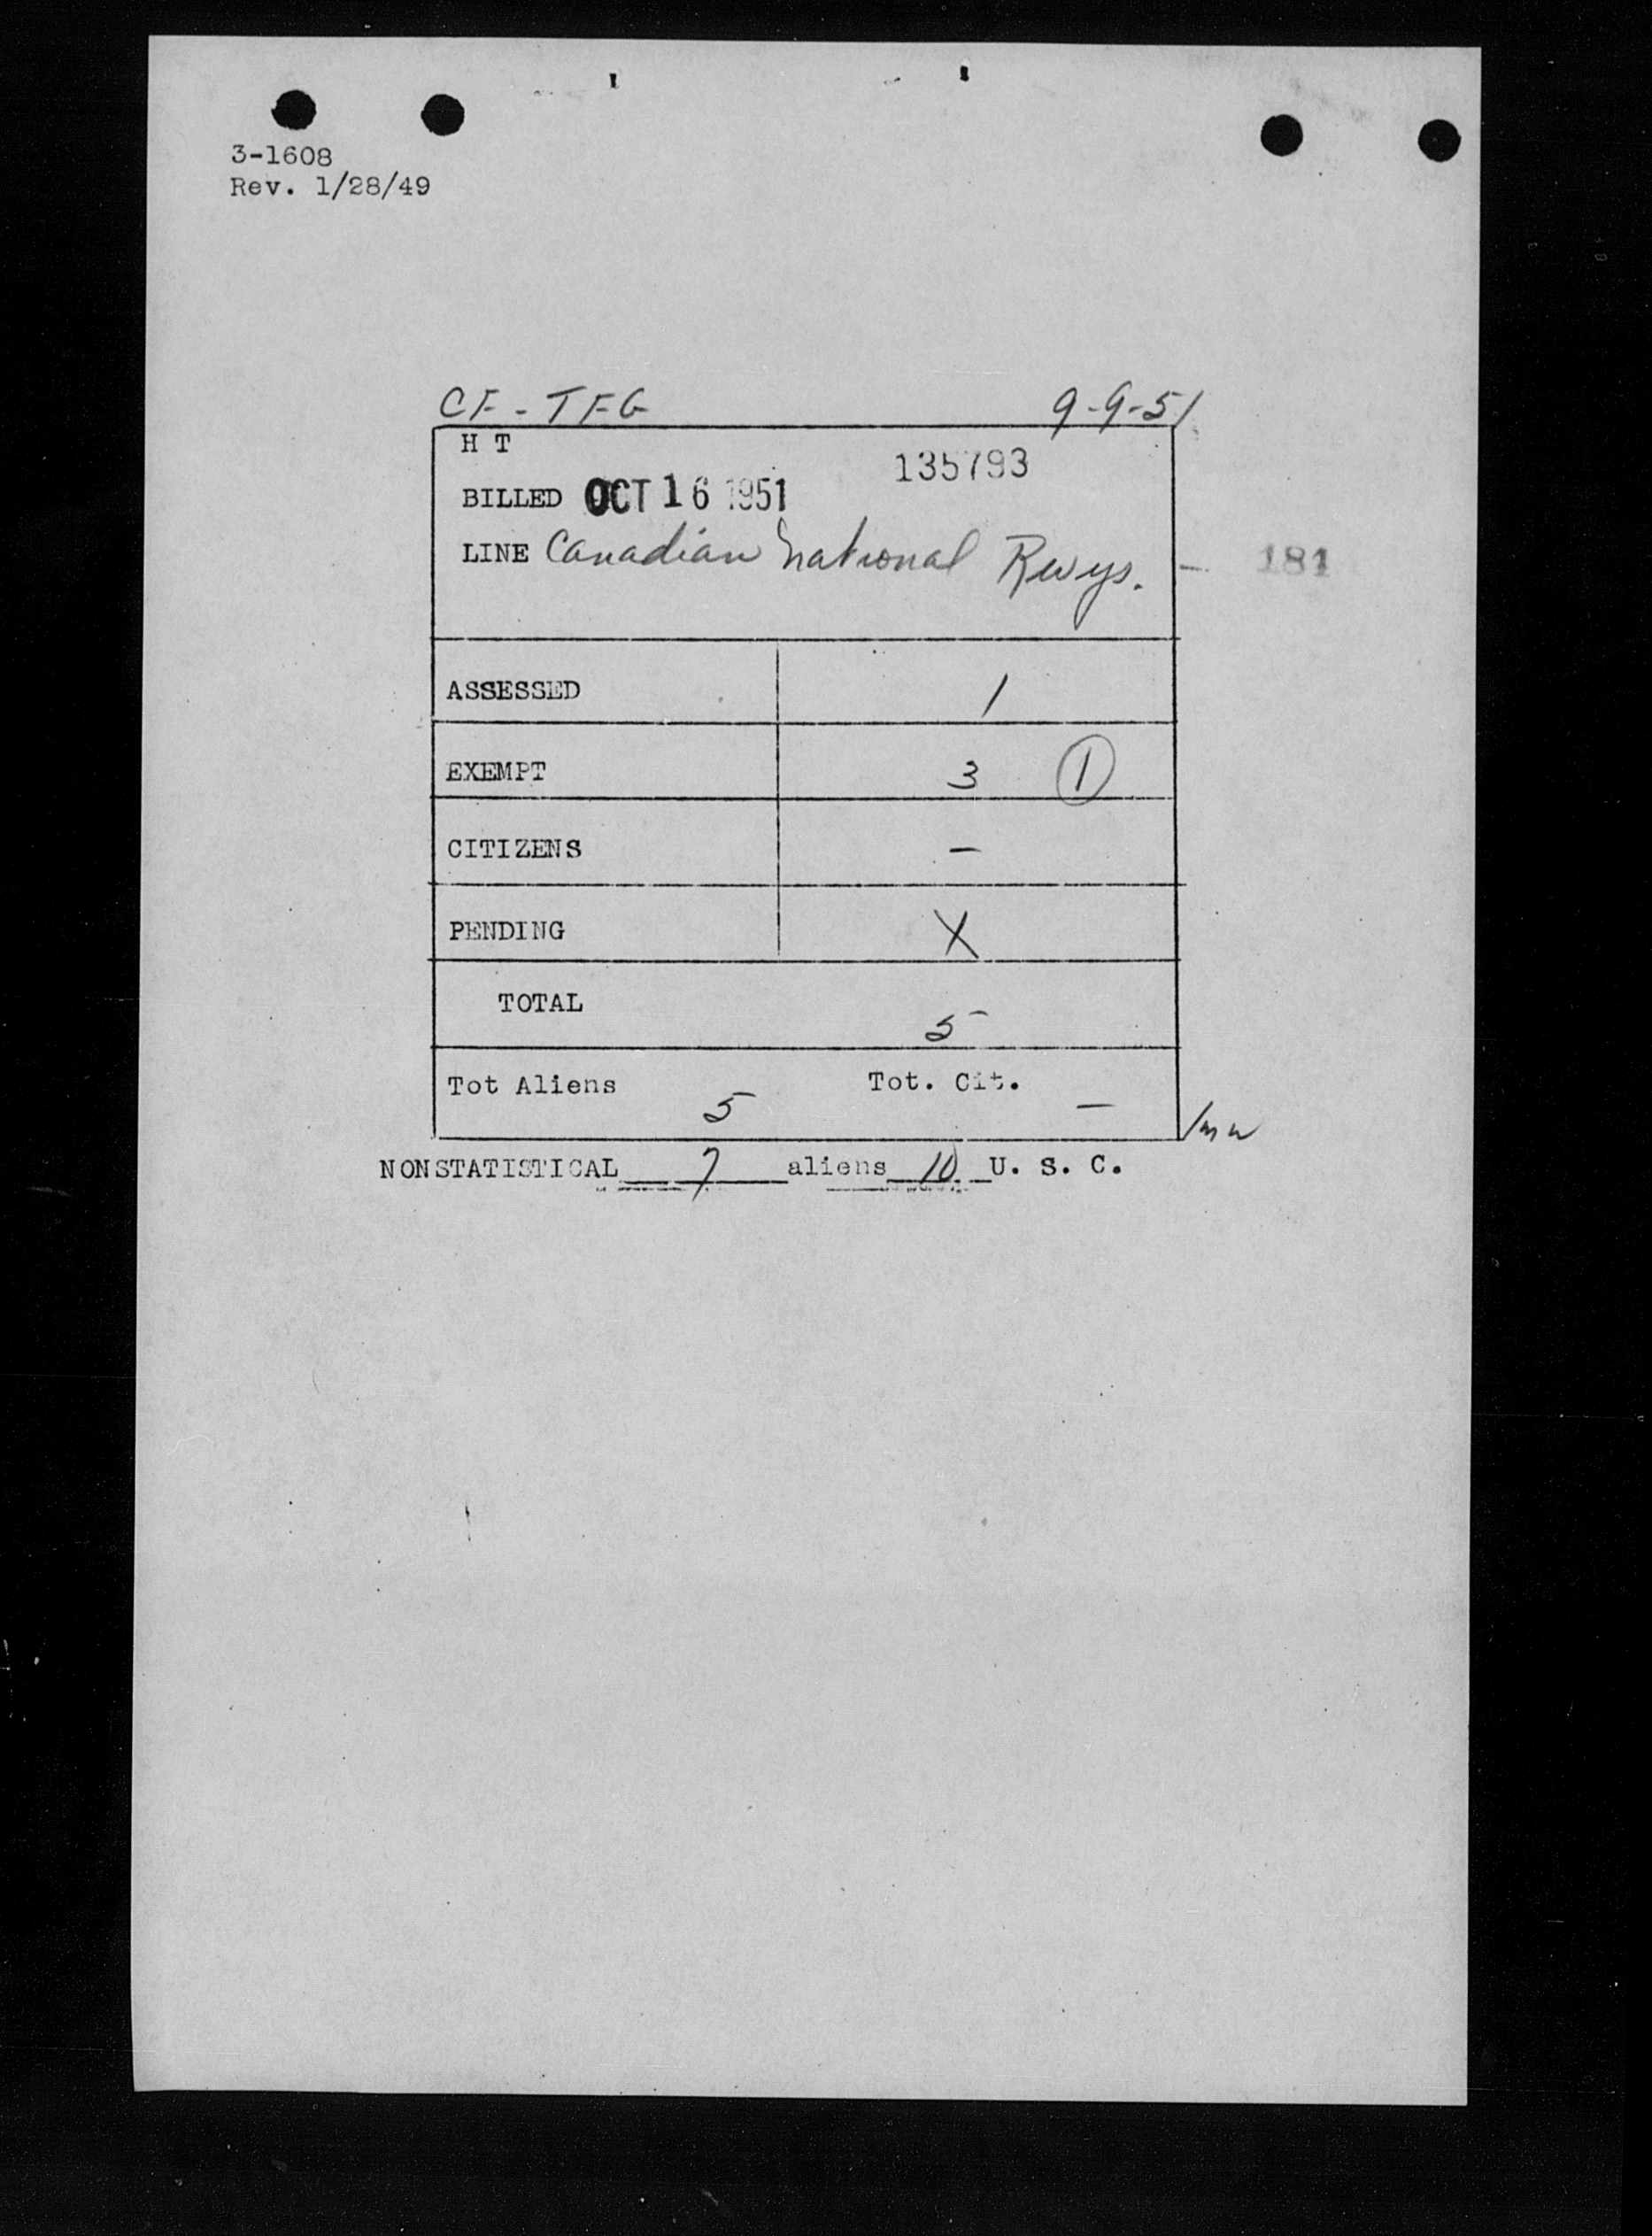 3-1608
Rev. 1/28/49
CF-TFG 9-9-51
H T
135793
BILLED OCT 16 1951
LINE Canadian National Rwys. - 181
ASSESSED 1
EXEMPT 3 1
CITIZENS -
PENDING X
TOTAL 5
Tot Aliens 5 Tot. Cit. -
NONSTATISTICAL 7 aliens 10 U. S. C.